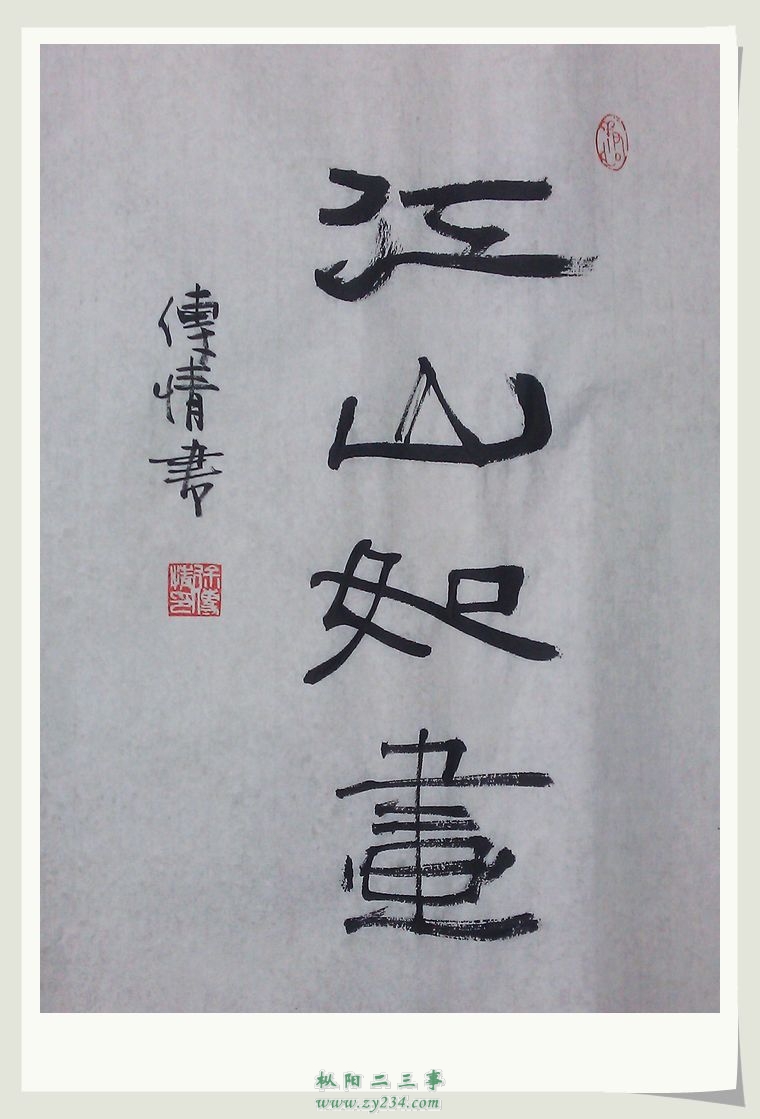 江山如畫
傳情書
徐傳情印
枞阳二三事
www.zy234.com